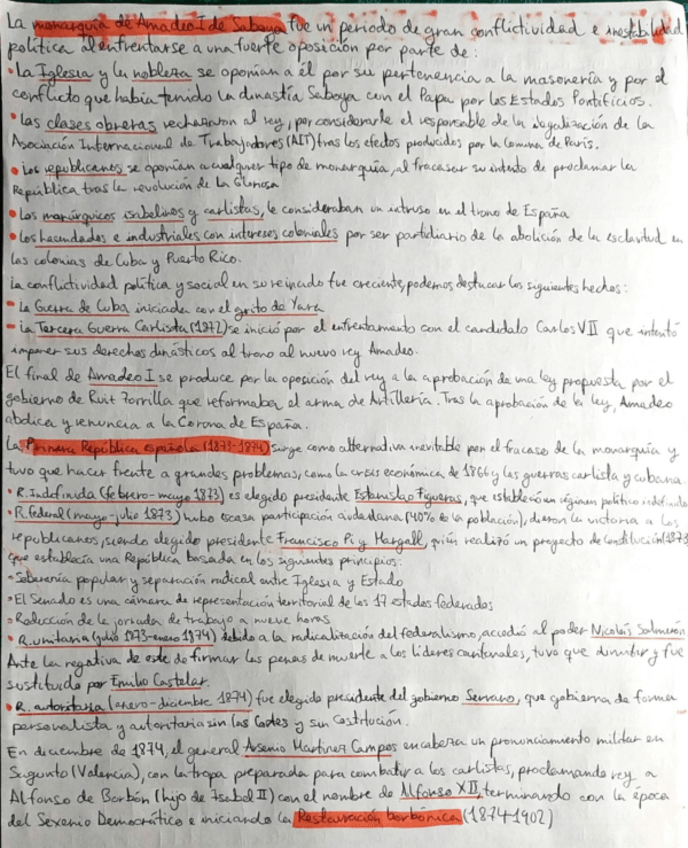 La monarquía de Amadeo I de Saboya fue un periodo de gran conflictividad e inestabilidad
política al enfrentarse a una fuerte oposición por parte de:
• La Iglesia y la nobleza se oponían a él por su pertenencia a la masonería y por el
conflicto que había tenido la dinastía Saboya con el Papa por los Estados Pontificios.
• Las clases obreras rechazaron al rey, por considerarle el responsable de la ilegalización de la
Asociación Internacional de Trabajadores (AIT) tras los efectos producidos por la Comuna de París.
• Los republicanos se oponían a cualquier tipo de monarquía, al fracasar su intento de proclamar la
República tras la revolución de La Gloriosa
• Los monárquicos isabelinos y carlistas, le consideraban un intruso en el trono de España
• Los hacendados e industriales con intereses coloniales por ser partidiario de la abolición de la esclavitud en
las colonias de Cuba y Puerto Rico.
La conflictividad política y social en su reinado fue creciente, podemos destacar los siguientes hechos:
• La Guerra de Cuba iniciada con el grito de Yara
• La Tercera Guerra Carlista (1872) se inició por el enfrentamiento con el candidato Carlos VII que intentó
imponer sus derechos dinásticos al trono al nuevo rey Amadeo.
El final de Amadeo I se produce por la oposición del rey a la aprobación de una ley propuesta por el
gobierno de Ruiz Zorrilla que reformaba el arma de Artillería. Tras la aprobación de la ley, Amadeo
abdica y renuncia a la Corona de España.
La Primera República española (1873-1874) surge como alternativa inevitable por el fracaso de la monarquía y
tuvo que hacer frente a grandes problemas, como la crisis económica de 1866 y las guerras carlista y cubana.
• R. Indefinida (febrero-mayo 1873) es elegido presidente Estanislao Figueras, que estableció un régimen político indefinido
• R. federal (mayo-julio 1873) hubo escasa participación ciudadana (40% de la población), dieron la victoria a los
republicanos, siendo elegido presidente Francisco Pi y Margall, quién realizó un proyecto de Constitución (1873
que establecía una República basada en los siguientes principios:
• Soberanía popular y separación radical entre Iglesia y Estado
• El Senado es una cámara de representación territorial de los 17 estados federados
• Reducción de la jornada de trabajo a nueve horas
• R. unitaria (julio 1873-enero 1874) debido a la radicalización del federalismo, accedió al poder Nicolás Salmerón
Ante la negativa de este de firmar las penas de muerte a los líderes cantonales, tuvo que dimitir y fue
sustituido por Emilio Castelar.
• R. autoritaria (enero-diciembre 1874) fue elegido presidente del gobierno Serrano, que gobierna de forma
personalista y autoritaria sin las Cortes y sin Costitución.
En diciembre de 1874, el general Arsenio Martínez Campos encabeza un pronunciamiento militar en
Sagunto (Valencia), con la tropa preparada para combatir a los carlistas, proclamando rey a
Alfonso de Borbón (hijo de Isabel II) con el nombre de Alfonso XII, terminando con la época
del Sexenio Democrático e iniciando la Restauración borbónica (1874-1902)